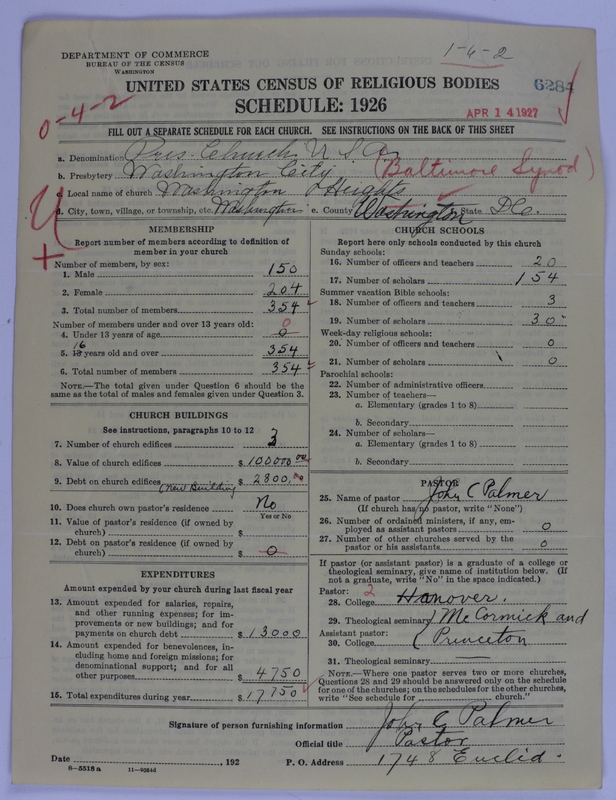 DEPARTMENT OF COMMERCE
BUREAU OF THE CENSUS
WASHINGTON
1-6-2
UNITED STATES CENSUS OF RELIGIOUS BODIES
6284
SCHEDULE: 1926
APR 14 1927
0-4-2
FILL OUT A SEPARATE SCHEDULE FOR EACH CHURCH. SEE INSTRUCTIONS ON THE BACK OF THIS SHEET
a. Denomination Pres. Church, U S A
b. Presbytery Washington City (Baltimore Synod)
c. Local name of church Washington Heights
d. City, town, village, or township, etc. Washington e. County Washington State D.C.
MEMBERSHIP
Report number of members according to definition of member in your church
Number of members, by sex:
1. Male 150
2. Female 204
3. Total number of members 354
Number of members under and over 13 years old: 0
4. Under 13 years of age 0
5. 13 16 years old and over 354
6. Total number of members 354
NOTE.—The total given under Question 6 should be the
same as the total of males and females given under Question 3.
CHURCH BUILDINGS
See instructions, paragraphs 10 to 12
7. Number of church edifices
8. Value of church edifices $ 100000.00
9. Debt on church edifices $ 2800.00
(New Building)
10. Does church own pastor's residence No
Yes or No
11. Value of pastor's residence (if owned by
church) $
12. Debt on pastor's residence (if owned by
church) $ 0
EXPENDITURES
Amount expended by your church during last fiscal year
13. Amount expended for salaries, repairs,
and other running expenses; for im-
provements or new buildings; and for
payments on church debt $ 13000
14. Amount expended for benevolences, in-
cluding home and foreign missions; for
denominational support; and for all
other purposes 4750
15. Total expenditures during year $ 17750
CHURCH SCHOOLS
Report here only schools conducted by this church
Sunday schools:
16. Number of officers and teachers 20
17. Number of scholars 154
Summer vacation Bible schools:
18. Number of officers and teachers 3
19. Number of scholars 30
Week-day religious schools:
20. Number of officers and teachers 0
21. Number of scholars 0
Parochial schools:
22. Number of administrative officers
23. Number of teachers—
a. Elementary (grades 1 to 8)
b. Secondary
24. Number of scholars—
a. Elementary (grades 1 to 8)
b. Secondary
PASTOR
25. Name of pastor John C Palmer
(If church has no pastor, write "None")
26. Number of ordained ministers, if any, em-
ployed as assistant pastors 0
27. Number of other churches served by the
pastor or his assistants 0
If pastor (or assistant pastor) is a graduate of a college or
theological seminary, give name of institution below. (If
not a graduate, write "No" in the space indicated.)
Pastor: 2
28. College Hanover.
29. Theological seminary McCormick and
Assistant pastor:
30. College Princeton
31. Theological seminary
NOTE.—Where one pastor serves two or more churches,
Questions 28 and 29 should be answered only on the schedule
for one of the churches; on the schedules for the other churches,
write "See schedule for church."
Signature of person furnishing information John C Palmer
Official title Pastor
Date , 192 P. O. Address 1748 Euclid.
8-5518 a